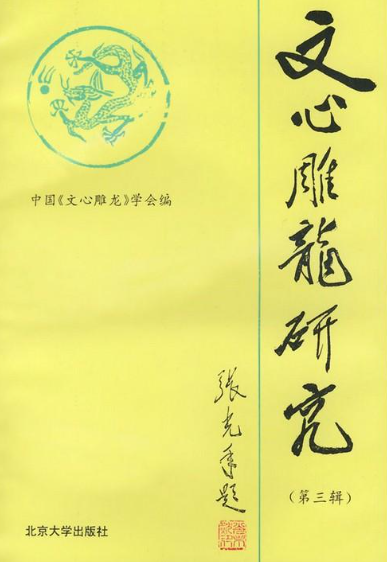 文心雕龍研究
(第三辑)
中国《文心雕龙》学会编
張光年題
北京大学出版社